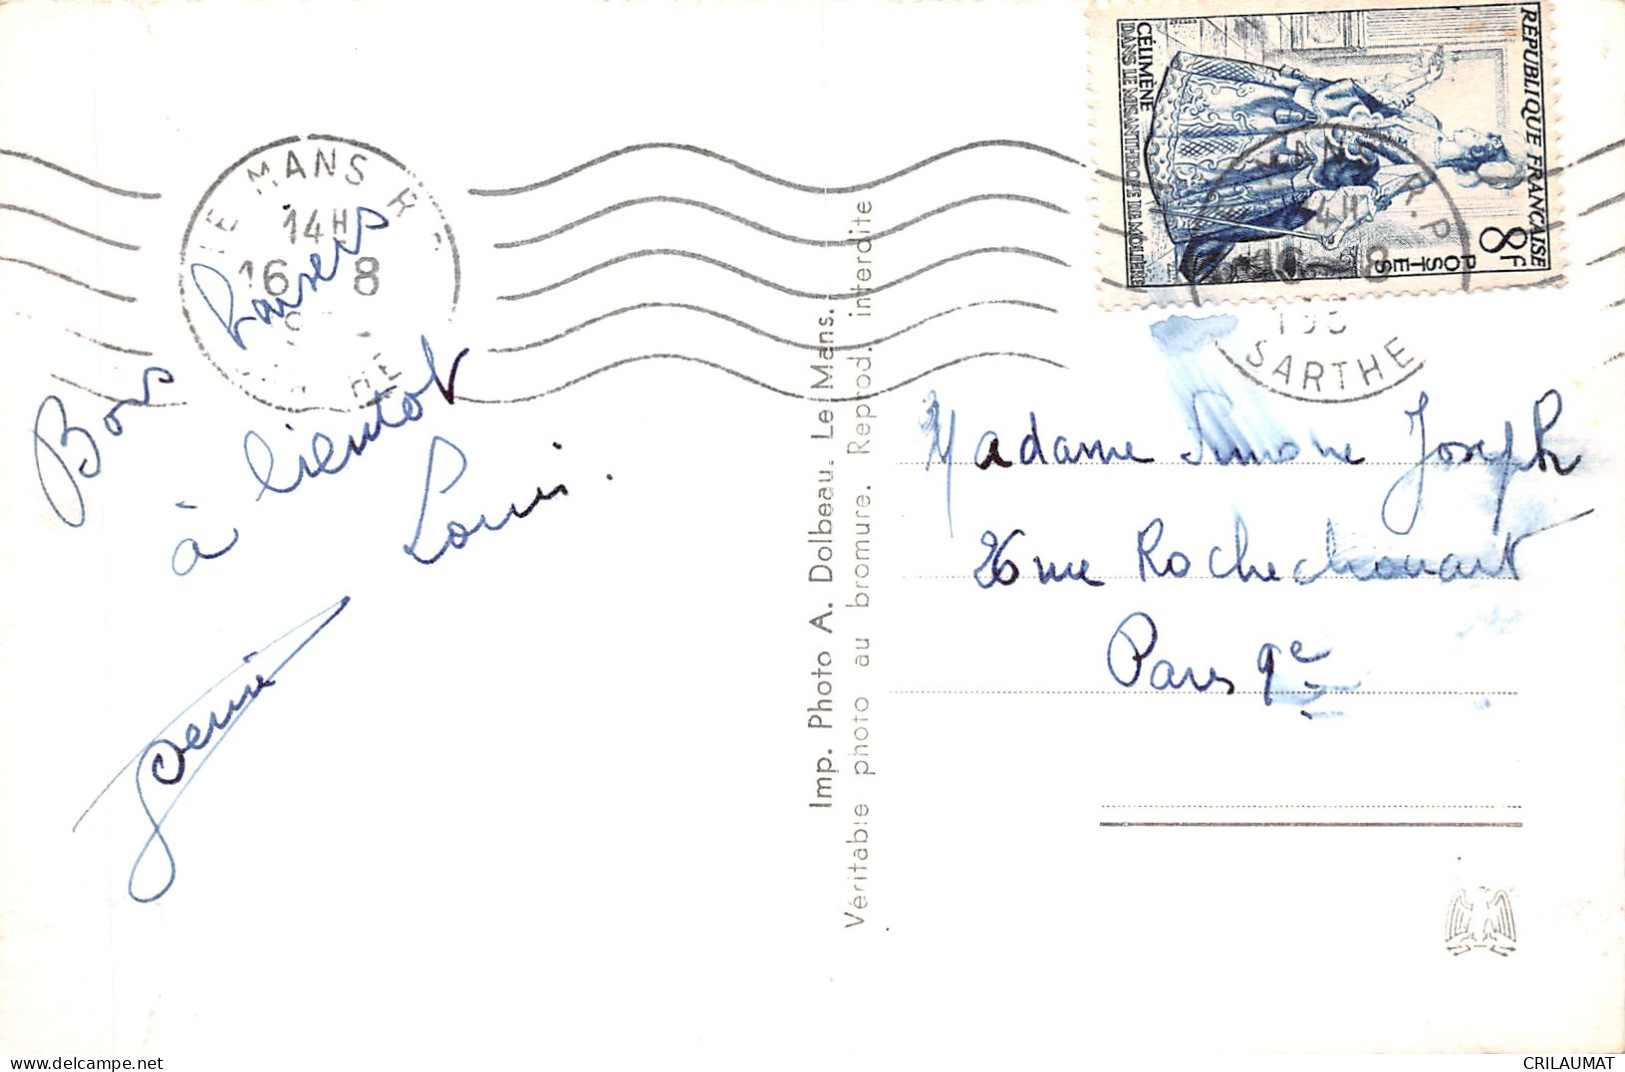 LE MANS R
14H
16 8
Bons baisers
à bientot
Louis.
Imp. Photo A. Dolbeau. Le Mans.
Véritable photo au bromure. Reprod. interdite
RÉPUBLIQUE FRANÇAISE
8F
POSTES
CÉLIMÈNE
DANS LE MISANTHROPE DE MOLIÈRE
MANS R.P
14H
8
195
SARTHE
Madame Simone Joseph
26 rue Rochechouart
Paris 9e
www.delcampe.net
CRILAUMAT